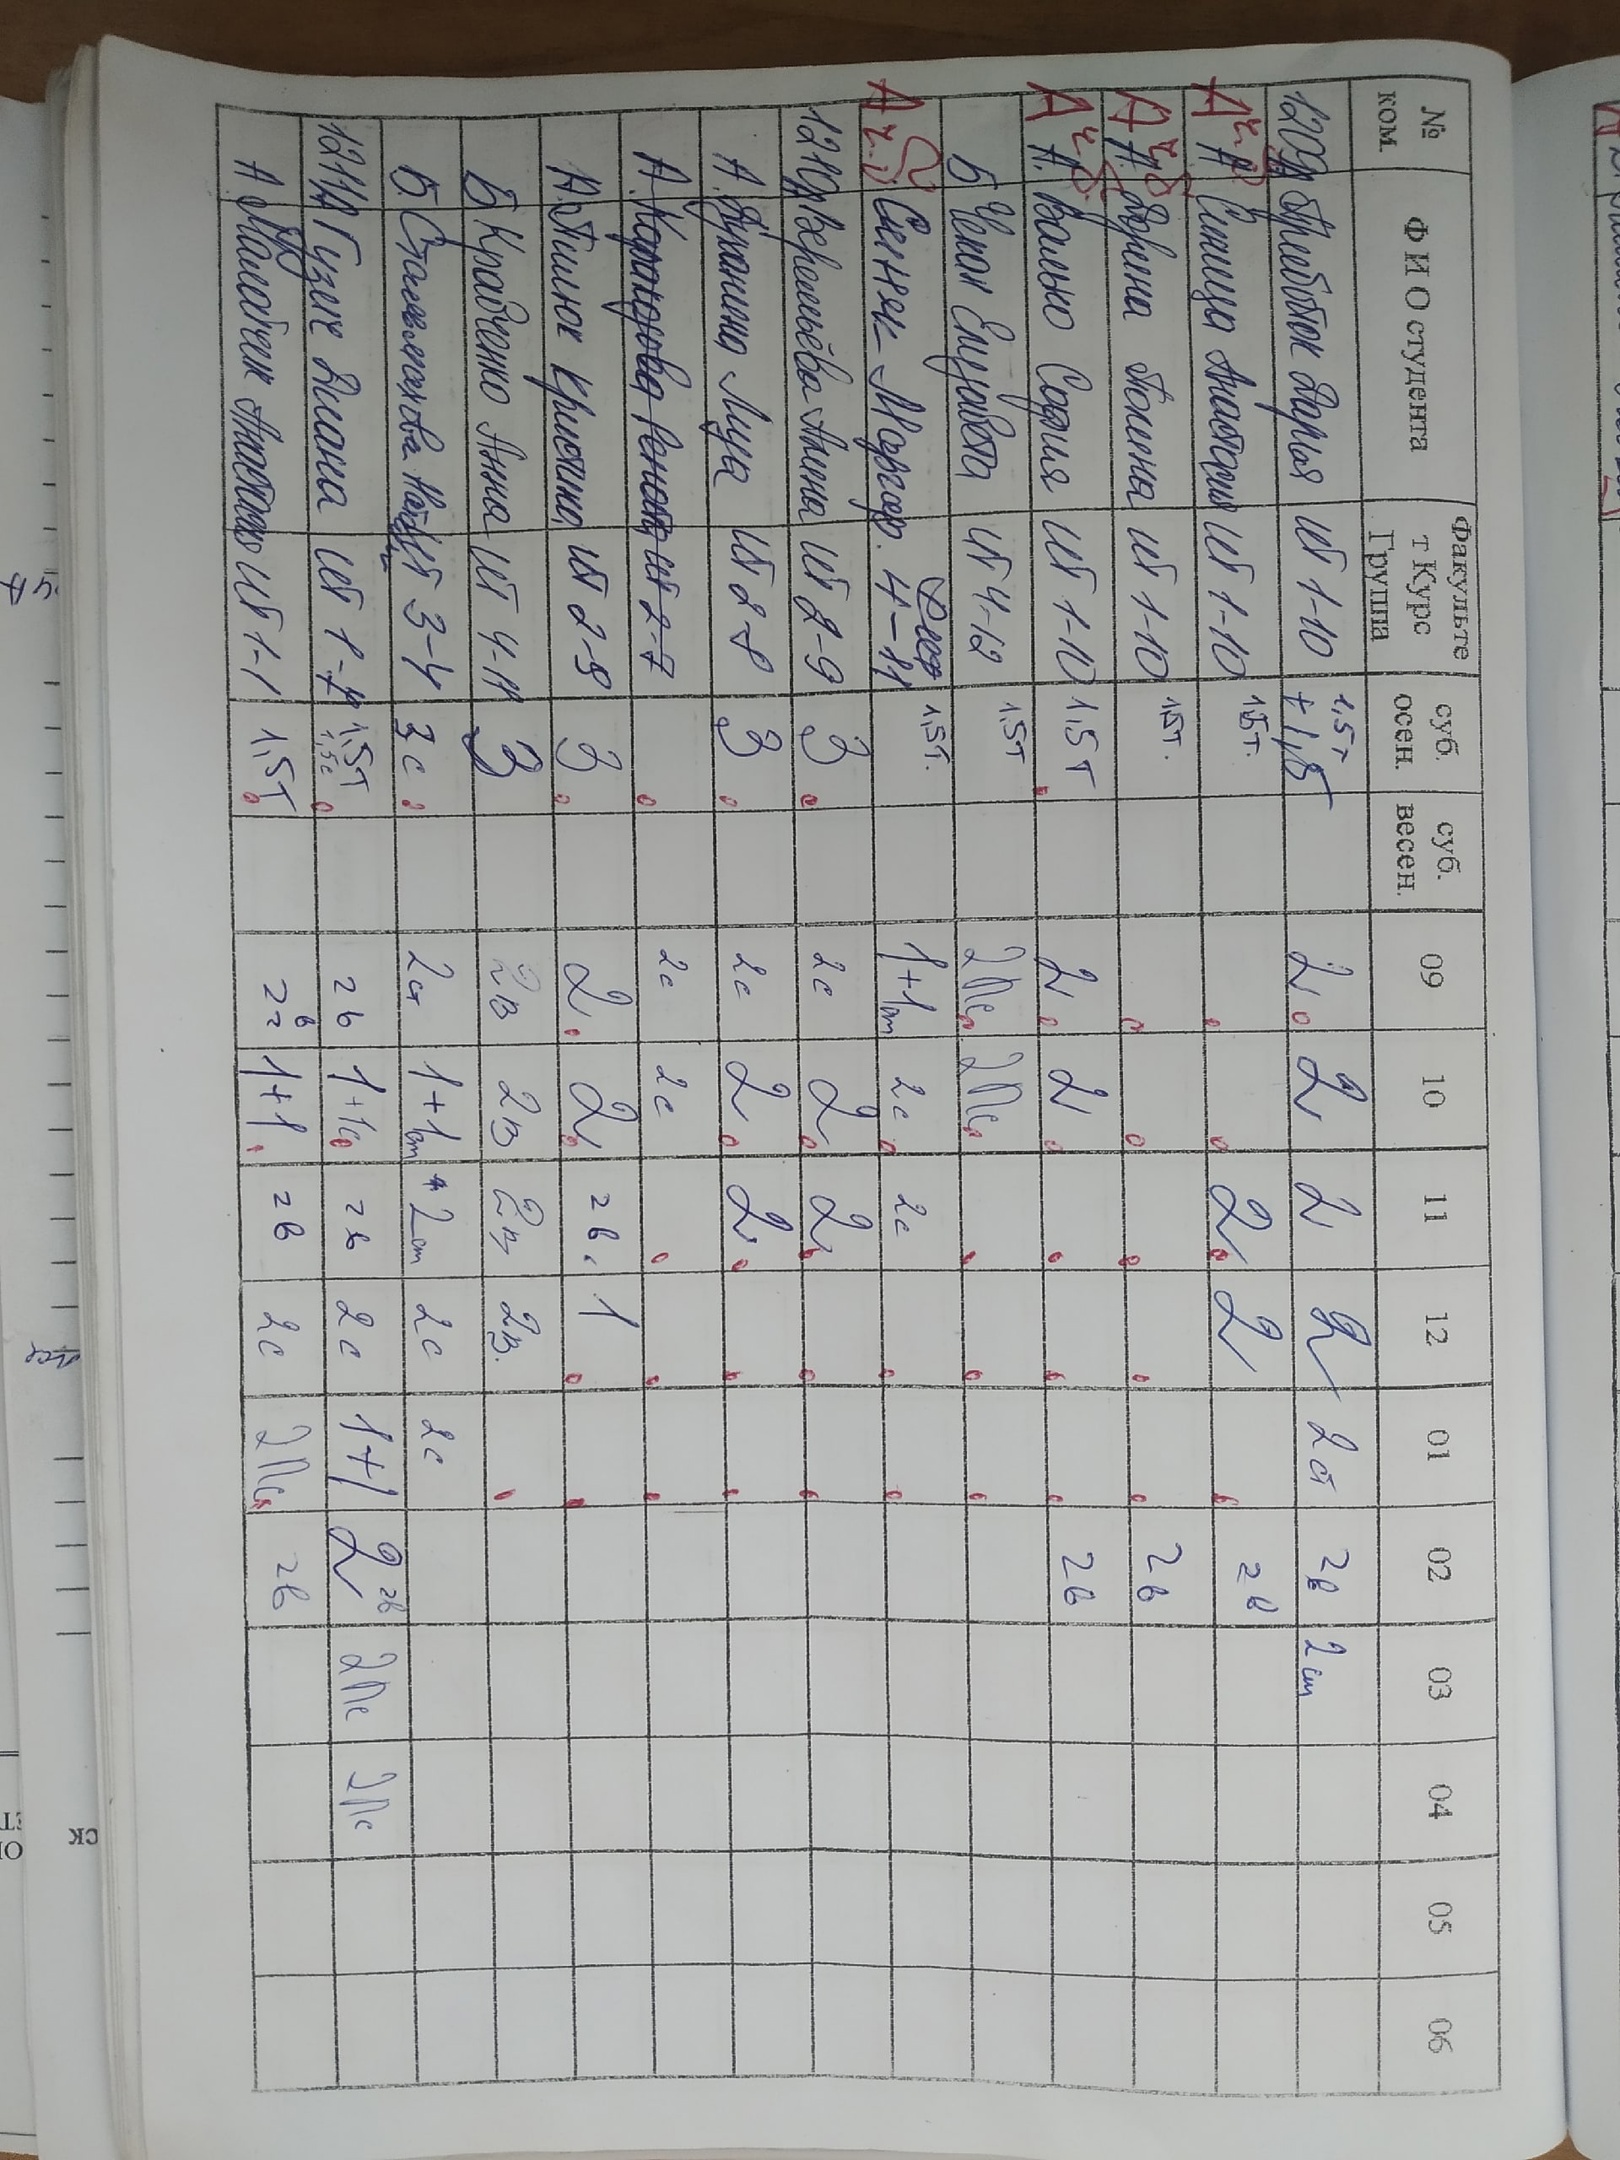 № ком. Ф И О студента Факульте т Курс Группа суб. осен. суб. весен. 09 10 11 12 01 02 03 04 05 06
1209А Прибыток Дарья ИТ 1-10 1,5т +1,5 2 2 2 2 2ст 2в 2ст
А ч.б А Синица Анастасия ИТ 1-10 1,5т. 2 2 2в
А ч.б А. Дорина Полина ИТ 1-10 1,5т. 2в
А ч.б. А. Валько София ИТ 1-10 1,5т 2 2 2в
Б Чекан Елизавета ИТ 4-12 1,5т 2Пс 2Пс
А ч.б Синяк Маргар. 4-11 1,5т. 1+1ст 2с 2с
1210А Веремьёва Алина ИТ 2-9 3 2с 2 2
А. Духанина Лиза ИТ 2-8 3 2с 2 2
А. Каракозова Рената ИТ 2-7 2с 2с
А. Пилюк Кристина ИТ 2-9 3 2 2 2в. 1
Б Кравченко Анна ИТ 4-11 3 2в 2в 2в 2в.
Б. Стальмахова ИТ 3-4 3с 2ст 1+1ст 2ст 2с 2с
1211А Гузич Диана ИТ 1-7 1,5т 1,5с 2в 1+1с 2в 2с 1+1 2 2в 2Пс 2Пс
А Малайчик Анастасия ИТ 1-1 1,5т 1+1 2в 2с 2Пс 2в